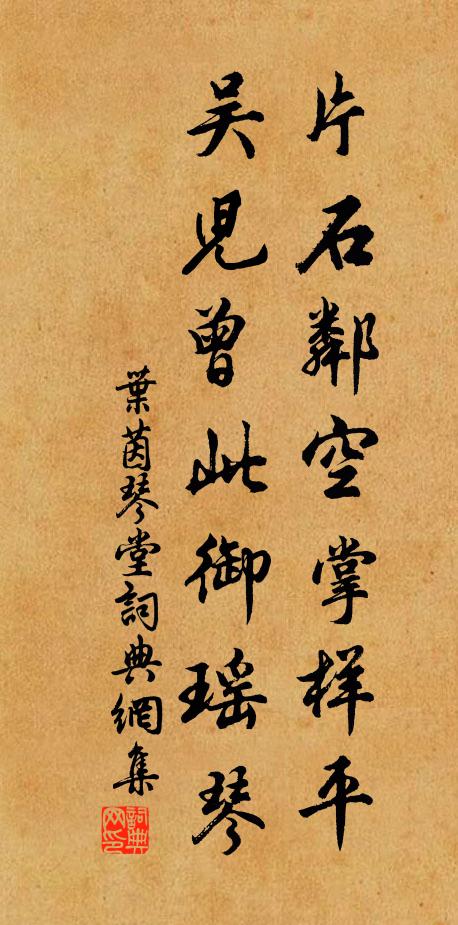 片石鄰空掌样平
吴児曾此御瑶琴
葉茵琴堂詞典網集
詞典网印